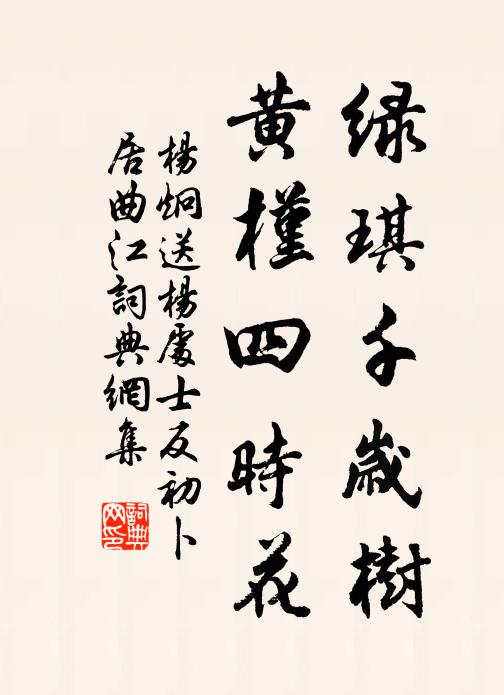 绿琪千歲樹
黃槿四時花
楊炯送楊處士反初卜
居曲江詞典網集
詞典网印